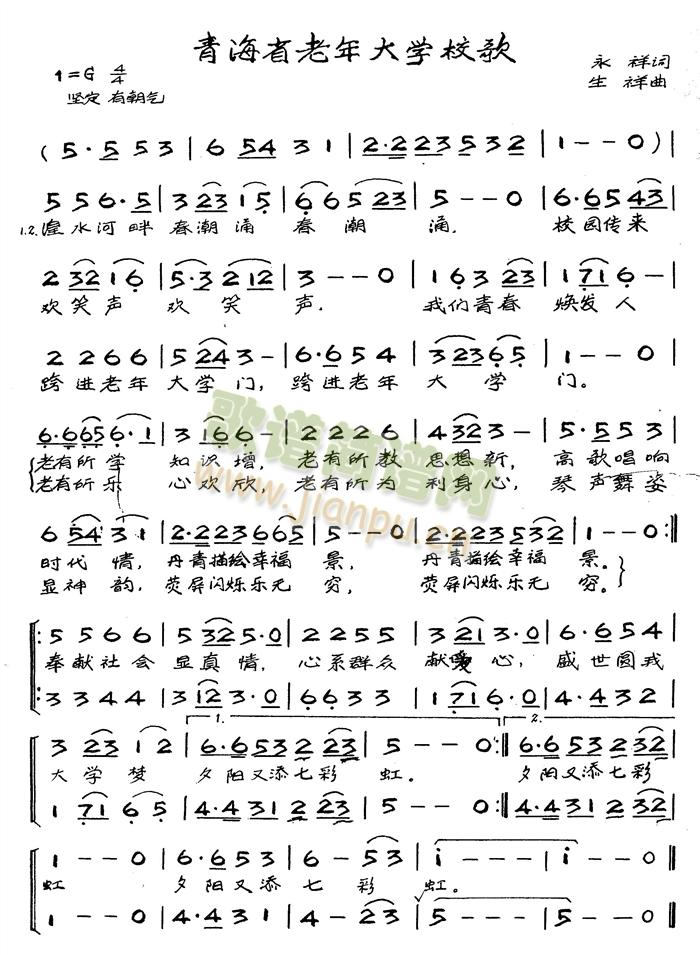 青海省老年大学校歌
1=G 4/4
永祥词
坚定 有朝气
生祥曲
(5·5 5 3 | 6 5 4 3 1 | 2·2 2 3 5 3 2 | 1 - - 0) |
5 5 6·5 | 3 2 3 1 5 | 6 6 5 2 3 | 5 - - 0 | 6·6 5 4 3 |
1.2.湟水河畔 春潮涌 春潮涌. 校园传来
2 3 2 1 6 | 5·3 2 1 2 | 3 - - 0 | 1 6 3 2 3 | 1 7 1 6 - |
欢笑声 欢笑声. 我们青春 焕发人
2 2 6 6 | 5 2 4 3 - | 6·6 5 4 | 3 2 3 6 5 | 1 - - 0 |
跨进老年 大学门, 跨进老年 大学门.
6·6 6 5 6·1 | 3 1 6 6 - | 2 2 2 6 | 4 3 2 3 - | 5·5 5 3 |
老有所学 知识增, 老有所教 思想新, 高歌唱响
老有所乐 心欢欣, 老有所为 利身心, 琴声舞姿
6 5 4 3 1 | 2·2 2 3 6 6 5 | 5 - - 0 | 2·2 2 3 5 3 2 | 1 - - 0 :||
时代情, 丹青描绘幸福景, 丹青描绘幸福景。
显神韵, 荧屏闪烁乐无穷, 荧屏闪烁乐无穷。
5 5 6 6 | 5 3 2 5·0 | 2 2 5 5 | 3 2 1 3·0 | 6·6 5 4 |
奉献社会 显真情, 心系群众 献爱心, 盛世圆我
3 3 4 4 | 3 1 2 3·0 | 6 6 3 3 | 1 7 1 6·0 | 4·4 3 2 |
1. 2.
3 2 3 1 2 | 6·6 5 3 2 2 3 | 5 - - 0 :|| 6·6 5 3 2 3 2 |
大学梦 夕阳又添七彩虹. 夕阳又添七彩
1 7 1 6 5 | 4·4 3 1 2 2 3 | 5 - - 0 :|| 4·4 3 1 2 3 2 |
1 - - 0 | 6·6 5 3 | 6 - 5 3 | i - - - | i - - 0 ||
虹 夕阳又添七彩虹。
1 - - 0 | 4·4 3 1 | 4 - 2 3 | 5 - - - | 5 - - 0 ||
歌谱简谱网
www.jianpu.cn